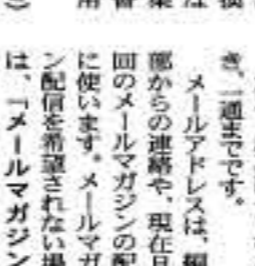 き、一通までです。
メールアドレスは、編
部からの連絡や、現在月
回のメールマガジンの配
に使います。メールマガ
ン配信を希望されない場
は、「メールマガジン